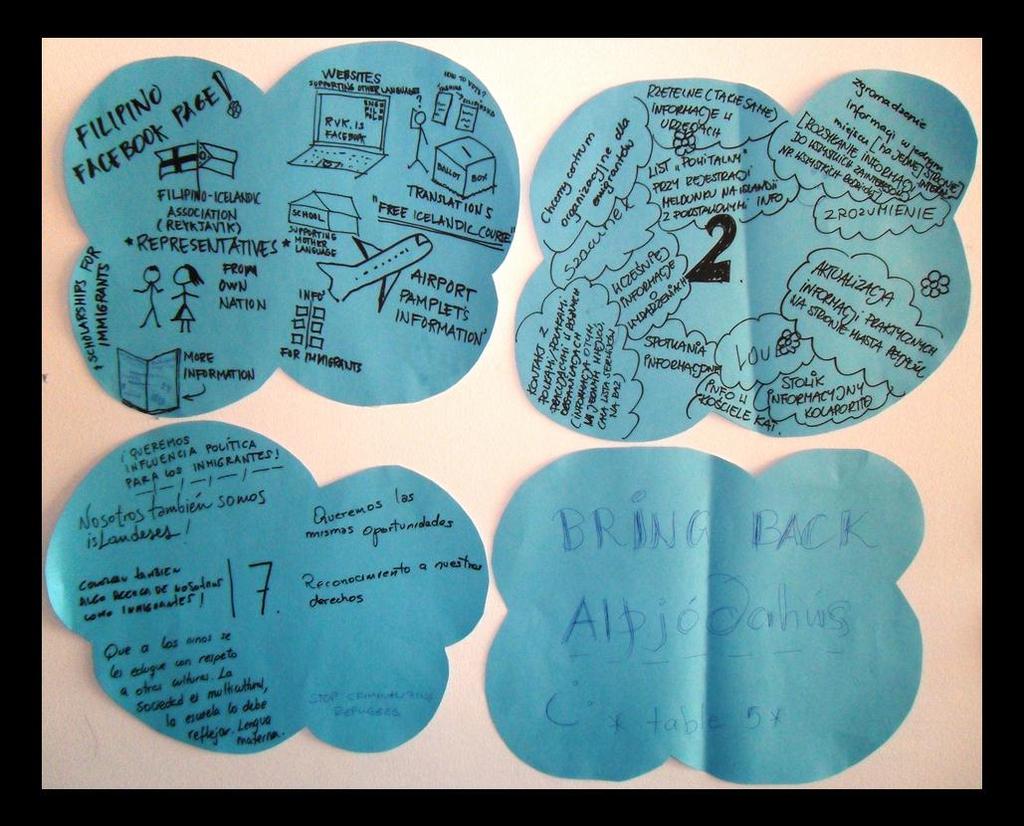 FILIPINO
FACEBOOK PAGE!
FILIPINO-ICELANDIC
ASSOCIATION
(REYKJAVIK)
*REPRESENTATIVES*
FROM
OWN
NATION
*SCHOLARSHIPS FOR
IMMIGRANTS
MORE
INFORMATION
WEBSITES
SUPPORTING OTHER LANGUAGES
RVK.IS
FACEBOOK
HOW TO VOTE?
?
BALLOT
BOX
TRANSLATIONS
"FREE ICELANDIC COURSE"
SCHOOL
SUPPORTING
MOTHER
LANGUAGE
AIRPORT
PAMPLETS
INFORMATION
INFO
FOR IMMIGRANTS
RZETELNE (TAKIE SAME)
INFORMACJE W
URZĘDACH
Chcemy centrum
organizacyjne dla
emigrantów
SZACUNEK
LIST "POWITALNY"
PRZY REJESTRACJI
MELDUNKU NA ISLANDII
Z PODSTAWOWYMI INFO
2
zgromadzenie
informacji w jednym
miejscu [na jednej stronie]
ZROZUMIENIE
WCZEŚNIEJ
INFORMACJE
WYDARZENIACH
AKTUALIZACJA
INFORMACJI PRAKTYCZNYCH
NA STRONIE MIASTA
KONTAKT Z
SPOTKANIA
INFORMACYJNE
INFO W
KOŚCIELE KAT.
STOLIK
INFORMACYJNY
KOLAPORTIO
¡QUEREMOS
INFLUENCIA POLÍTICA
PARA LOS INMIGRANTES!
Nosotros también somos
isLandeses!
CONOZCAN TAMBIEN
ALGO ACERCA DE NOSOTROS
COMO INMIGRANTES!
7.
Que a los ninos se
les eduque con respeto
a otras culturas. La
sociedad es multicultural,
la escuela lo debe
reflejar. Lengua
materna.
Queremos las
mismas oportunidades
Reconocimiento a nuestros
derechos
STOP CRIMINALIZING
REFUGEES
BRING BACK
Alþjóðahús
* table 5*